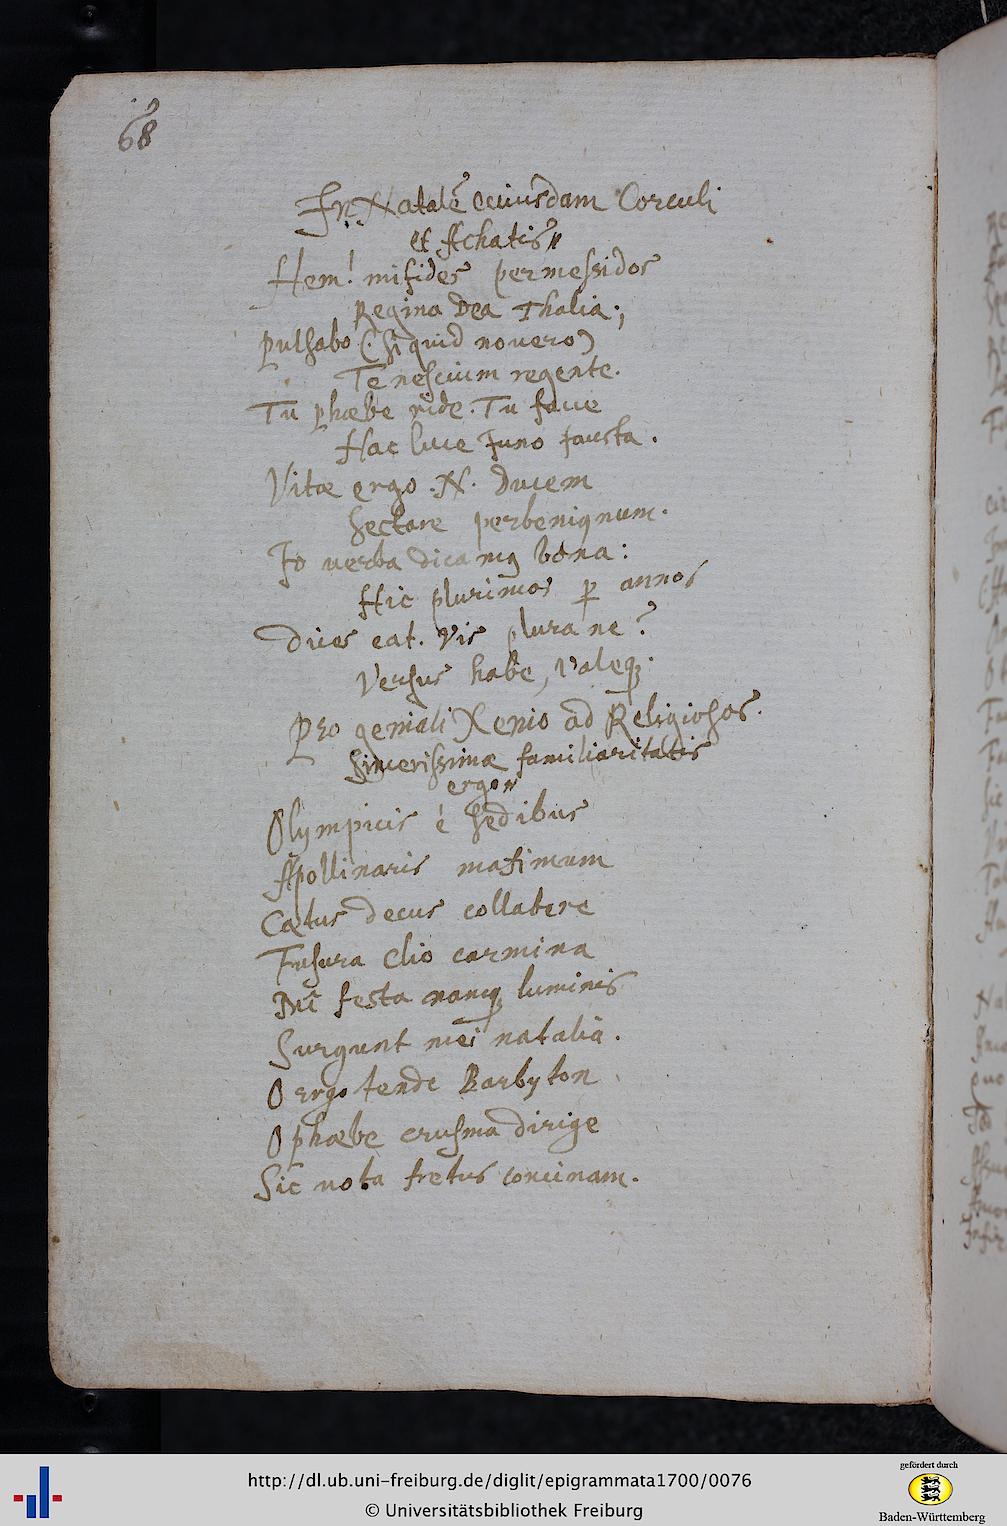 68
In Natalē cuiusdam Corculi
et Achatis
Hem! mi fides permessidos
Regina Dea Thalia;
Pulsabo (si quid novero)
Te nescium regente.
Tu phæbe ride. Tu faue
Hac luce Juno fausta.
Vitæ ergo .N. ducem
Sectare perbenignum.
Io verba dicamq bona:
Hic plurimos p annos
Dives eat. Vis plura ne?
Versus habe, valeq.
Pro geniali Xenio ad Religiosos.
Sincerissimæ familiaritatis
ergo
Olympicis è Sedibus
Apollinaris
Cætus decus collabere
Fusura Clio carmina
festa namq luminis
Surgunt mei natalia.
O ergo tende Barbyton
O phæbe crusma dirige
Sic nota fretus concinam.
http://dl.ub.uni-freiburg.de/diglit/epigrammata1700/0076
© Universitätsbibliothek Freiburg
gefördert durch
Baden-Württemberg